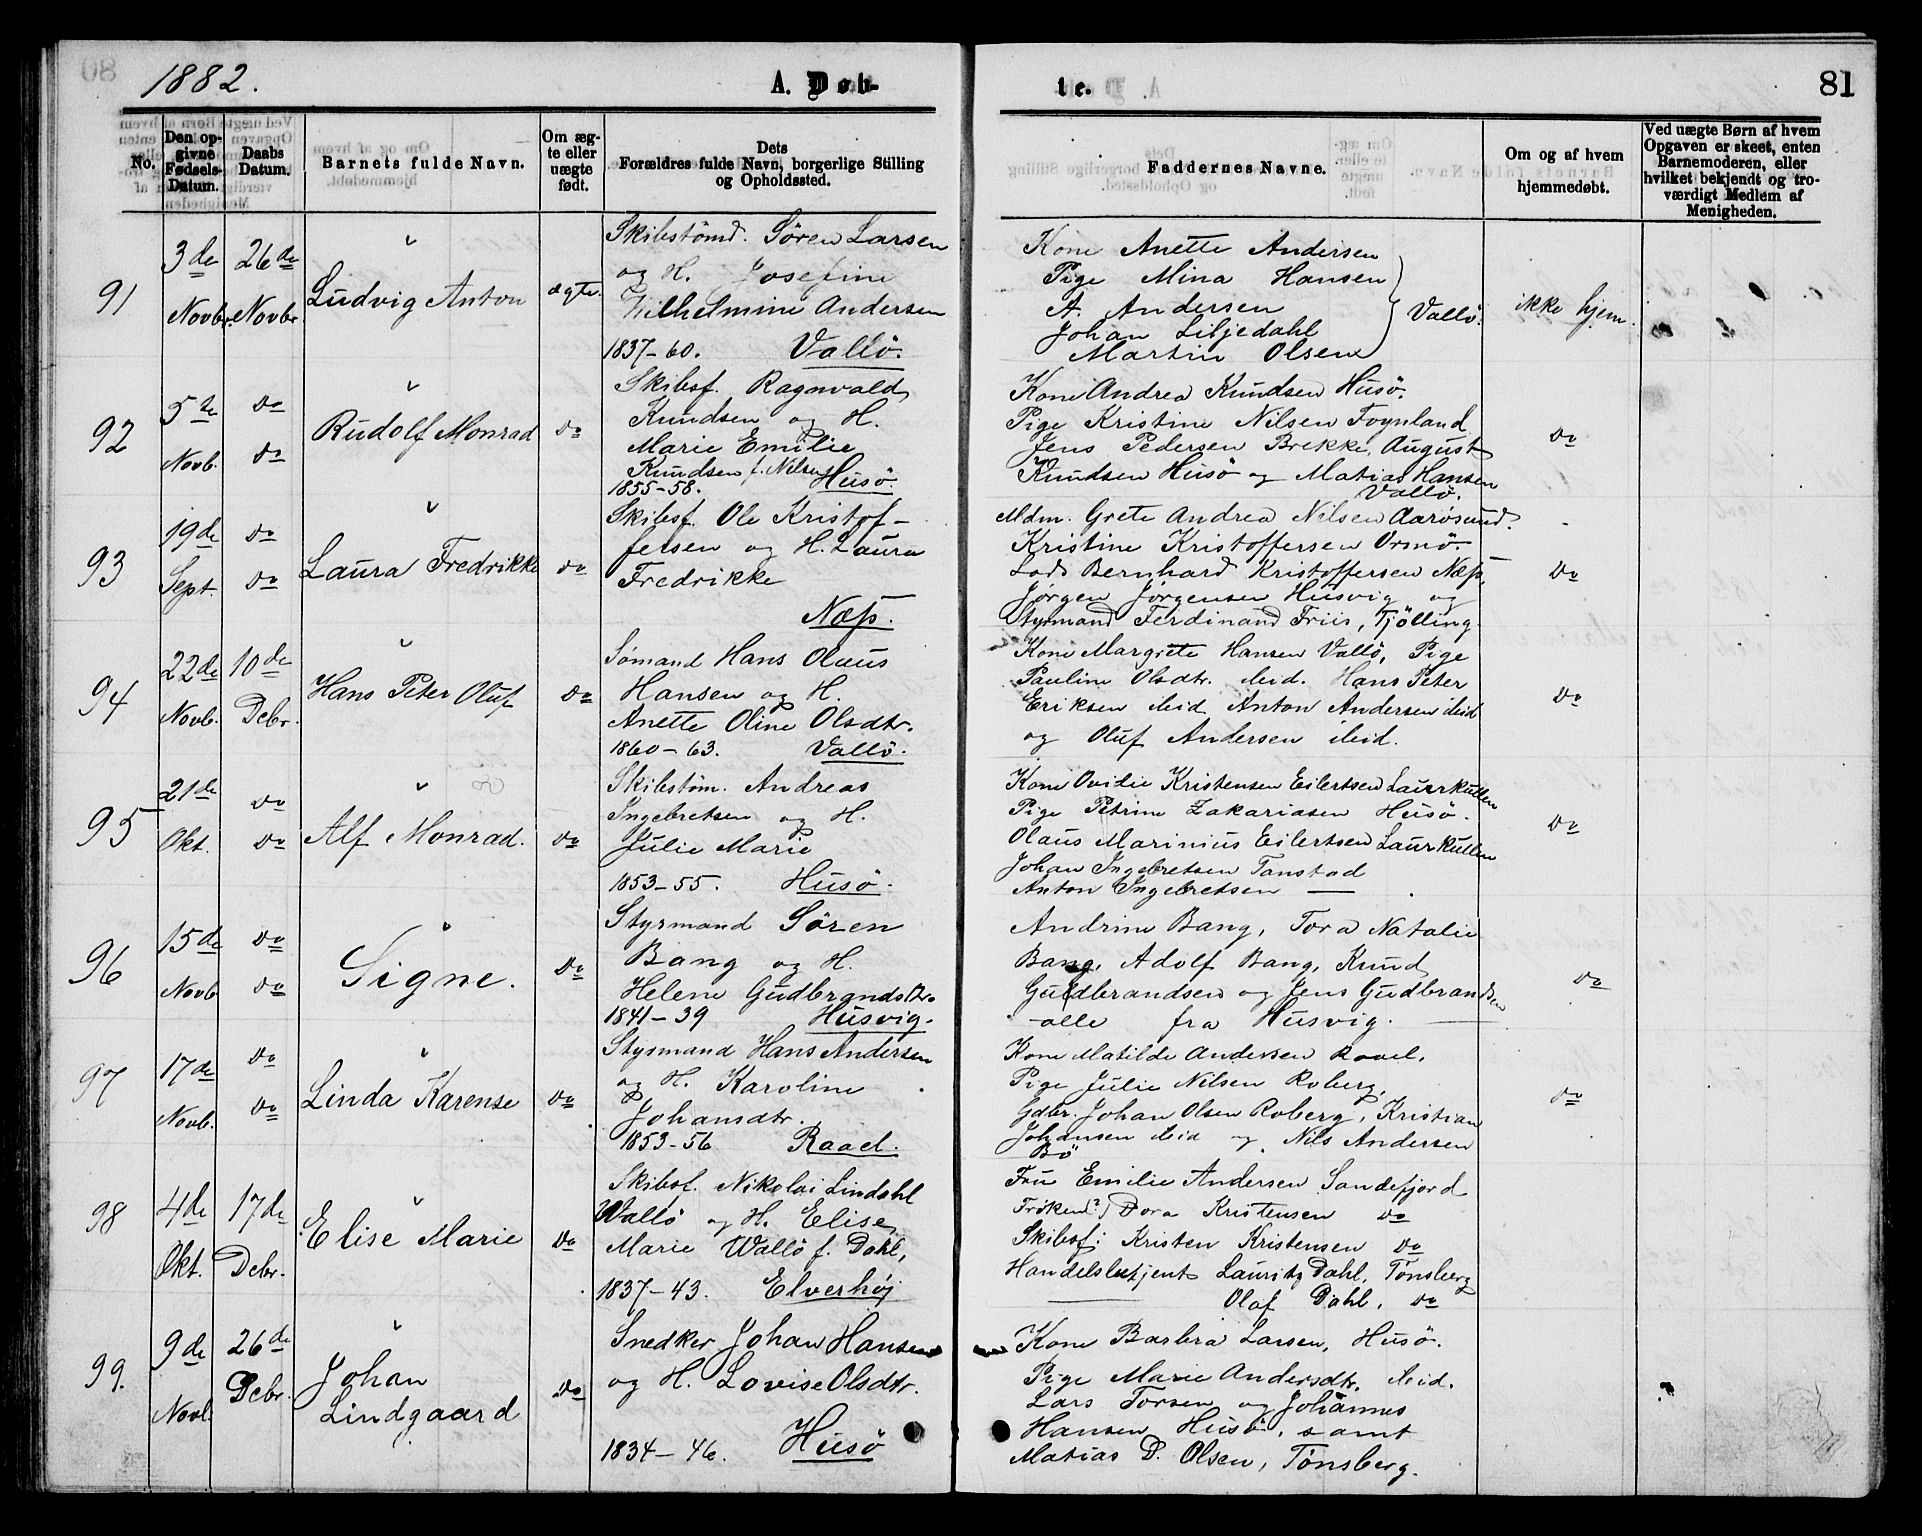 1882.
A. Døb-
te.
81
No.
Den op-
givne
Fødsels-
Datum.
Daabs
Datum.
Barnets fulde Navn.
Om æg-
te eller
uægte
født.
Dets
Forældres fulde Navn, borgerlige Stilling
og Opholdssted.
Faddernes Navne.
Om og af hvem
hjemmedøbt.
Ved uægte Børn af hvem
Opgaven er skeet, enten
Barnemoderen, eller
hvilket bekjendt og tro-
værdigt Medlem af
Menigheden.
91
3de
Novbr.
26de
Novbr
Ludvig Anton
ægte.
Skibstømd. Sören Larsen
og H. Josefine
Vilhelmine Andersen
1837-60. Vallö.
Kone Anette Andersen
Pige Mina Hansen
A. Andersen
Johan Liljedahl
Martin Olsen
Vallö.
ikke hjem.
92
5te
Novb.
do
do
Rudolf Monrad
do
Skibsf. Ragnvald
Knudsen og H.
Marie Emilie
Knudsen f. Nilsen
1855-58. Husö.
Kone Andrea Knudsen Husö.
Pige Kristine Nilsen Foynland
Jens Pedersen Brekke, August
Knudsen Husö og Matias Hansen
Vallö.
do
93
19de
Sept.
do
do
Laura Fredrikke
do
Skibsf. Ole Kristof-
fersen og H. Laura
Fredrikke
Næss.
Mdm. Grete Andrea Nilsen Aarösund.
Kristine Kristoffersen Ormö.
Lods Bernhard Kristoffersen Næss,
Jörgen Jörgensen Husvig og
Styrmand Ferdinand Friis, Tjölling.
do
94
22de
Novb.
10de
Debr.
Hans Peter Oluf
do
Sömand Hans Olaus
Hansen og H.
Anette Oline Olsdtr.
1860-63. Vallö.
Kone Margrete Hansen Vallö, Pige
Pauline Olsdtr. ibid. Hans Peter
Eriksen ibid Anton Andersen ibid
og Oluf Andersen ibid.
do
95
21de
Okt.
do
do
Alf Monrad.
do
Skibstöm. Andreas
Ingebretsen og H.
Julie Marie
1853-55. Husö.
Kone Ovidie Kristensen Eilertsen Laurkullen
Pige Petrine Zakariasen Husö.
Olaus Marinius Eilertsen Laurkullen
Johan Ingebretsen Tanstad
Anton Ingebretsen —
do
96
15de
Novb
do
do
Signe.
do
Styrmand Sören
Bang og H.
Helene Gudbrandsdtr.
1841-39 Husvig.
Andrine Bang, Tora Natalie
Bang, Adolf Bang, Knud
Guldbrandsen og Jens Gudbrandsen
- alle fra Husvig.
do
97
17de
Novb.
do
do
Linda Karense
do
Styrmand Hans Andersen
og H. Karoline
Johansdtr.
1853-56 Raael.
Kone Matilde Andersen Raael.
Pige Julie Nilsen Roberg,
Gdbr. Johan Olsen Roberg, Kristian
Johansen ibid og Nils Andersen
Bö
do
98
4de
Okt.
17de
Debr.
Elise Marie
do
Skibsf. Nikolai Lindahl
Wallö og H. Elise
Marie Wallö f. Dahl,
1837-43. Elverhöj
Fru Emilie Andersen Sandefjord
Fröken?) Dora Kristensen do
Skibsf: Kristen Kristensen do
Handelsbetjent Lauritz Dahl, Tönsberg
— Olaf Dahl. do
99.
9de
Novb.
26de
Debr.
Johan
Lindgaard
do
Snedker Johan Hansen
og H. Lovise Olsdtr.
1834-46. Husö
Kone Barbra Larsen, Husö.
Pige Marie Andersdtr. ibid.
Lars Torsen og Johannes
Hansen Husö, samt
Matias D. Olsen, Tönsberg.